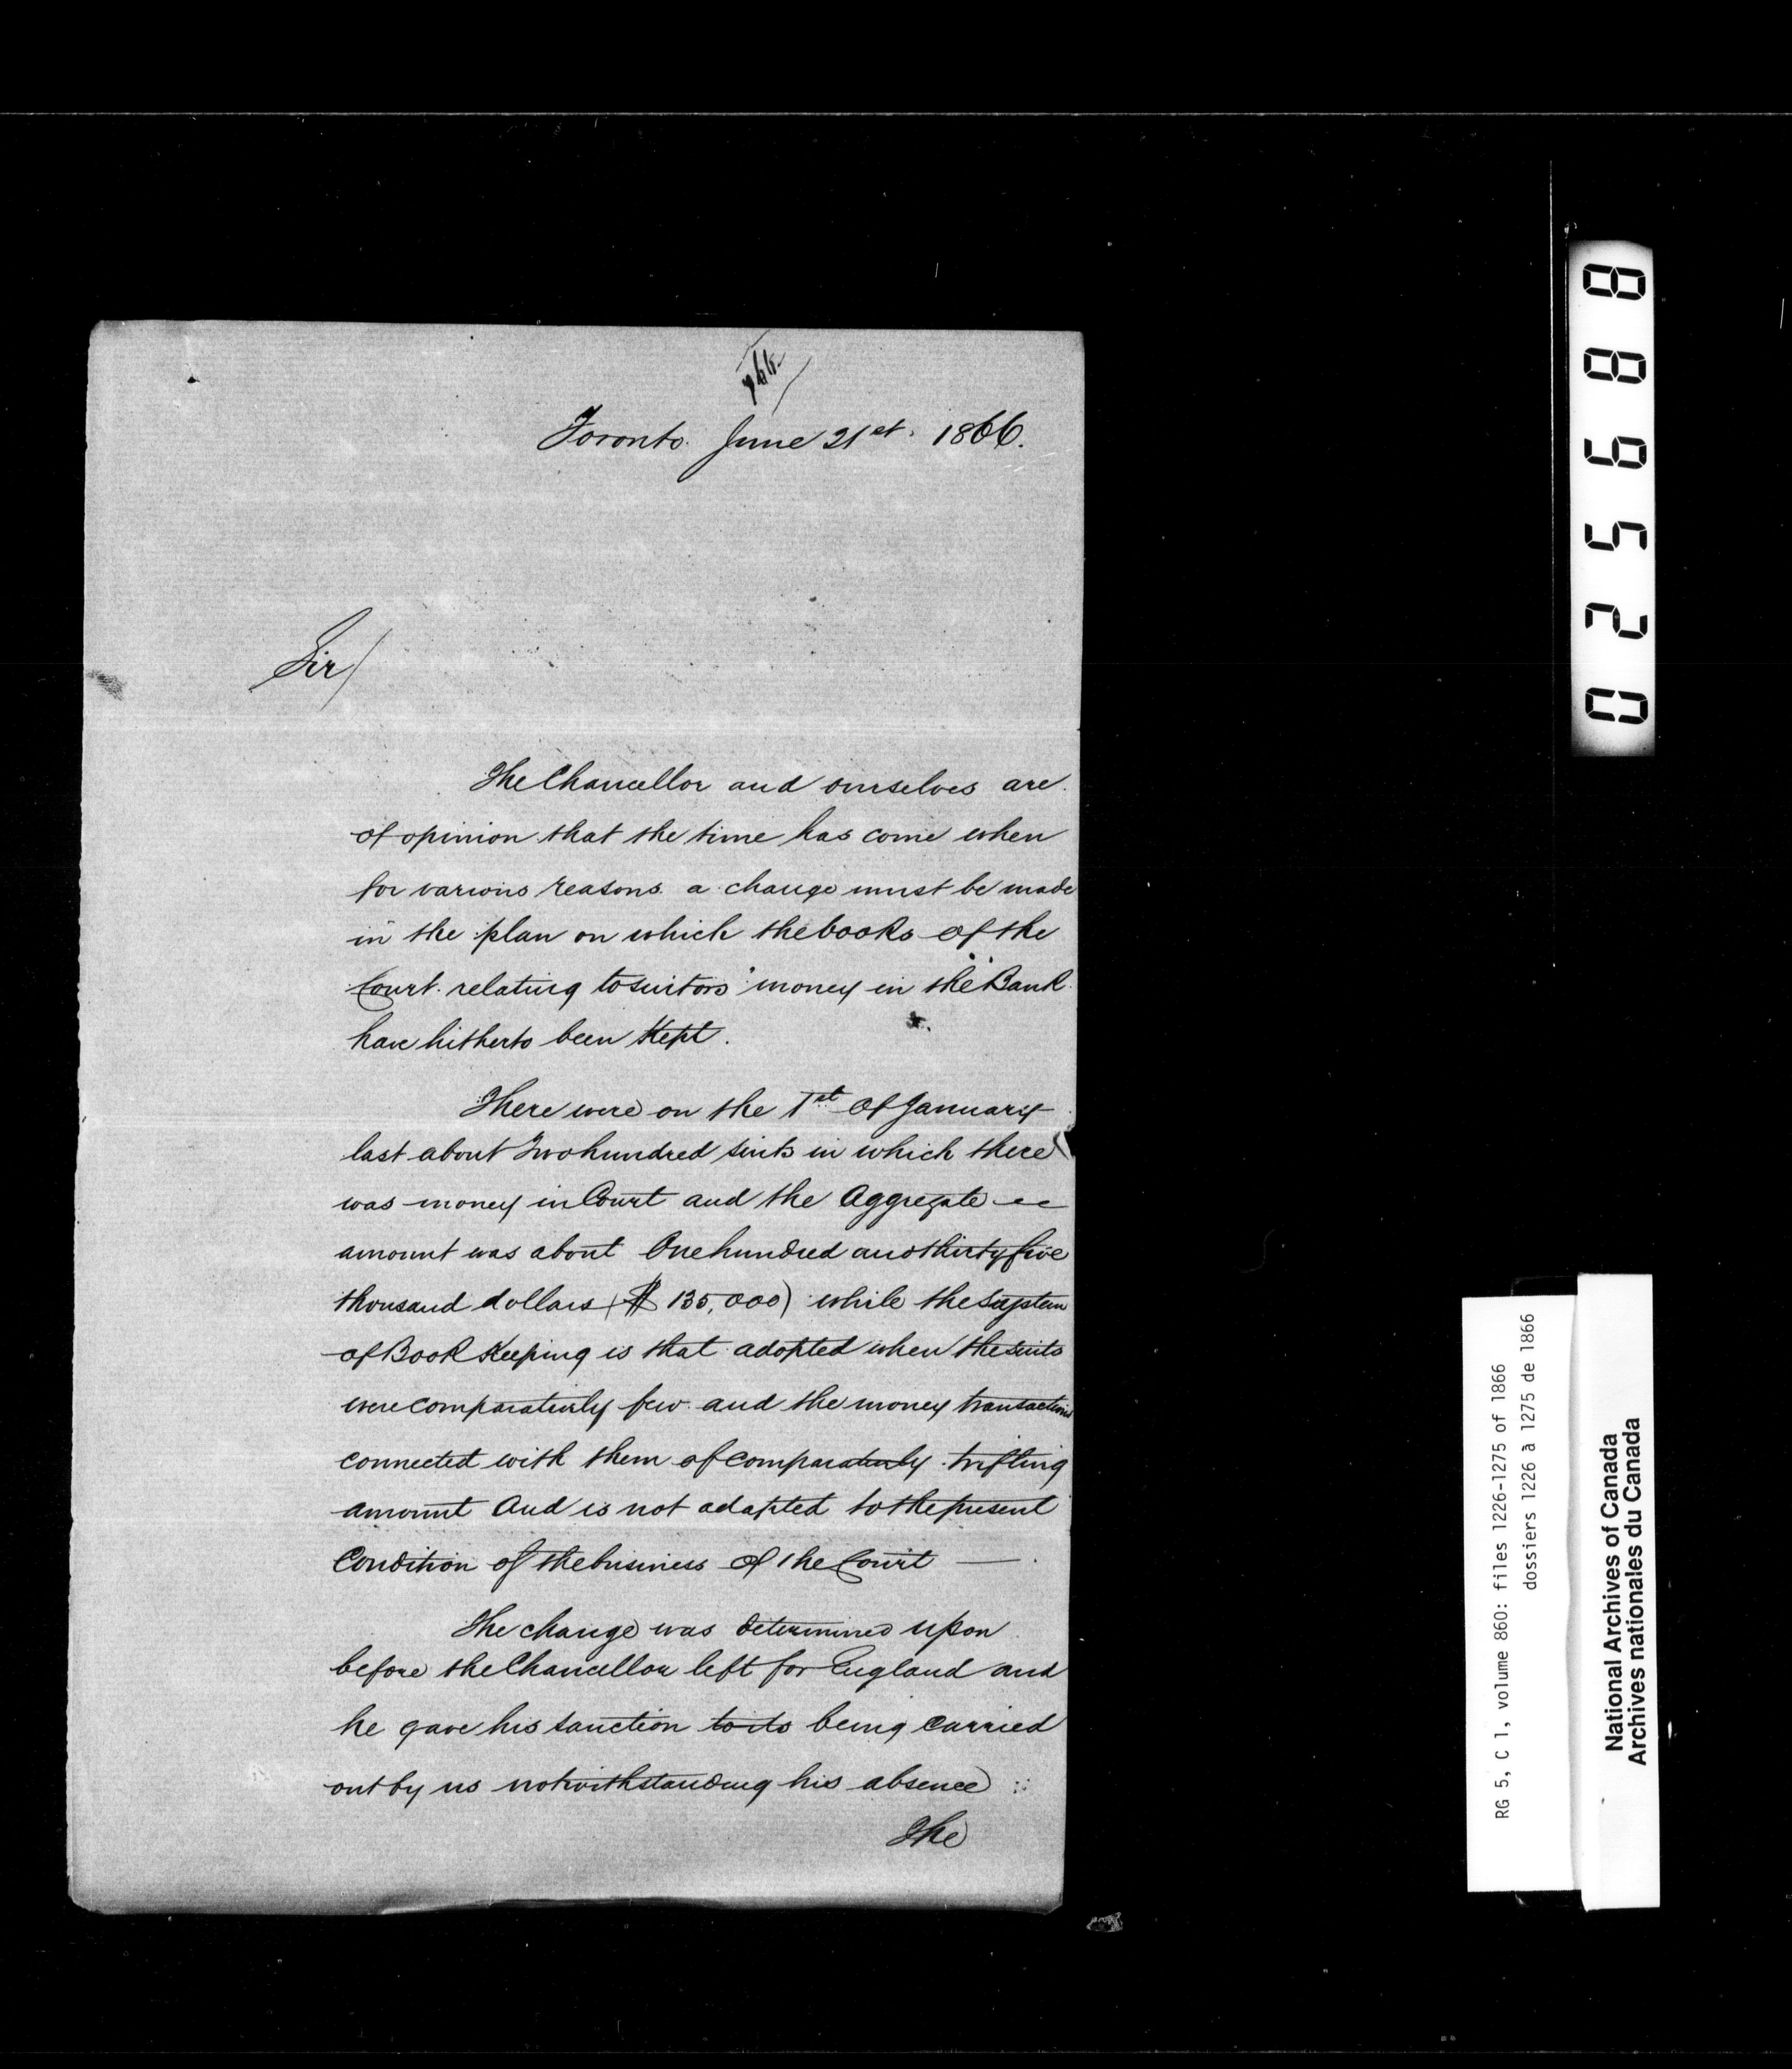 Toronto. June 21st. 1866.
Sir/
The Chancellor and ourselves are
of opinion that the time has come when
for various reasons a change must be made
in the plan on which the books of the
Court relating to suitors' money in the Bank
have hitherto been kept.
There were on the 1st of January
last about Two hundred suits in which there
was money in Court and the Aggregate
amount was about One hundred and thirty five
thousand dollars ($ 135,000) while the System
of Book Keeping is that adopted when the suits
were comparatively few and the money transactions
connected with them of comparatively trifling
amount and is not adapted to the present
Condition of the business of the Court —
The change was determined upon
before the Chancellor left for England and
he gave his sanction to its being carried
out by us notwithstanding his absence
The
025688
RG 5, C 1, volume 860: files 1226-1275 of 1866
dossiers 1226 à 1275 de 1866
National Archives of Canada
Archives nationales du Canada